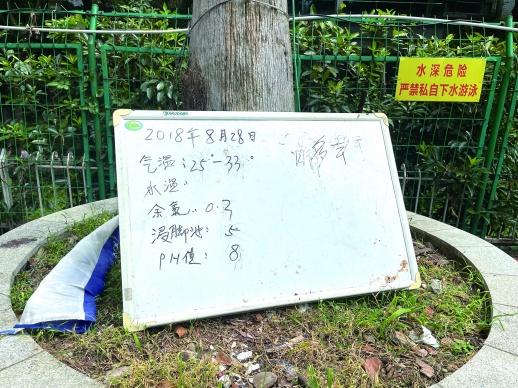 水深危险
严禁私自下水游泳
2018年8月28日
气温:25°-33°
水温
余氯:0.3
浸脚池:5
PH值:8